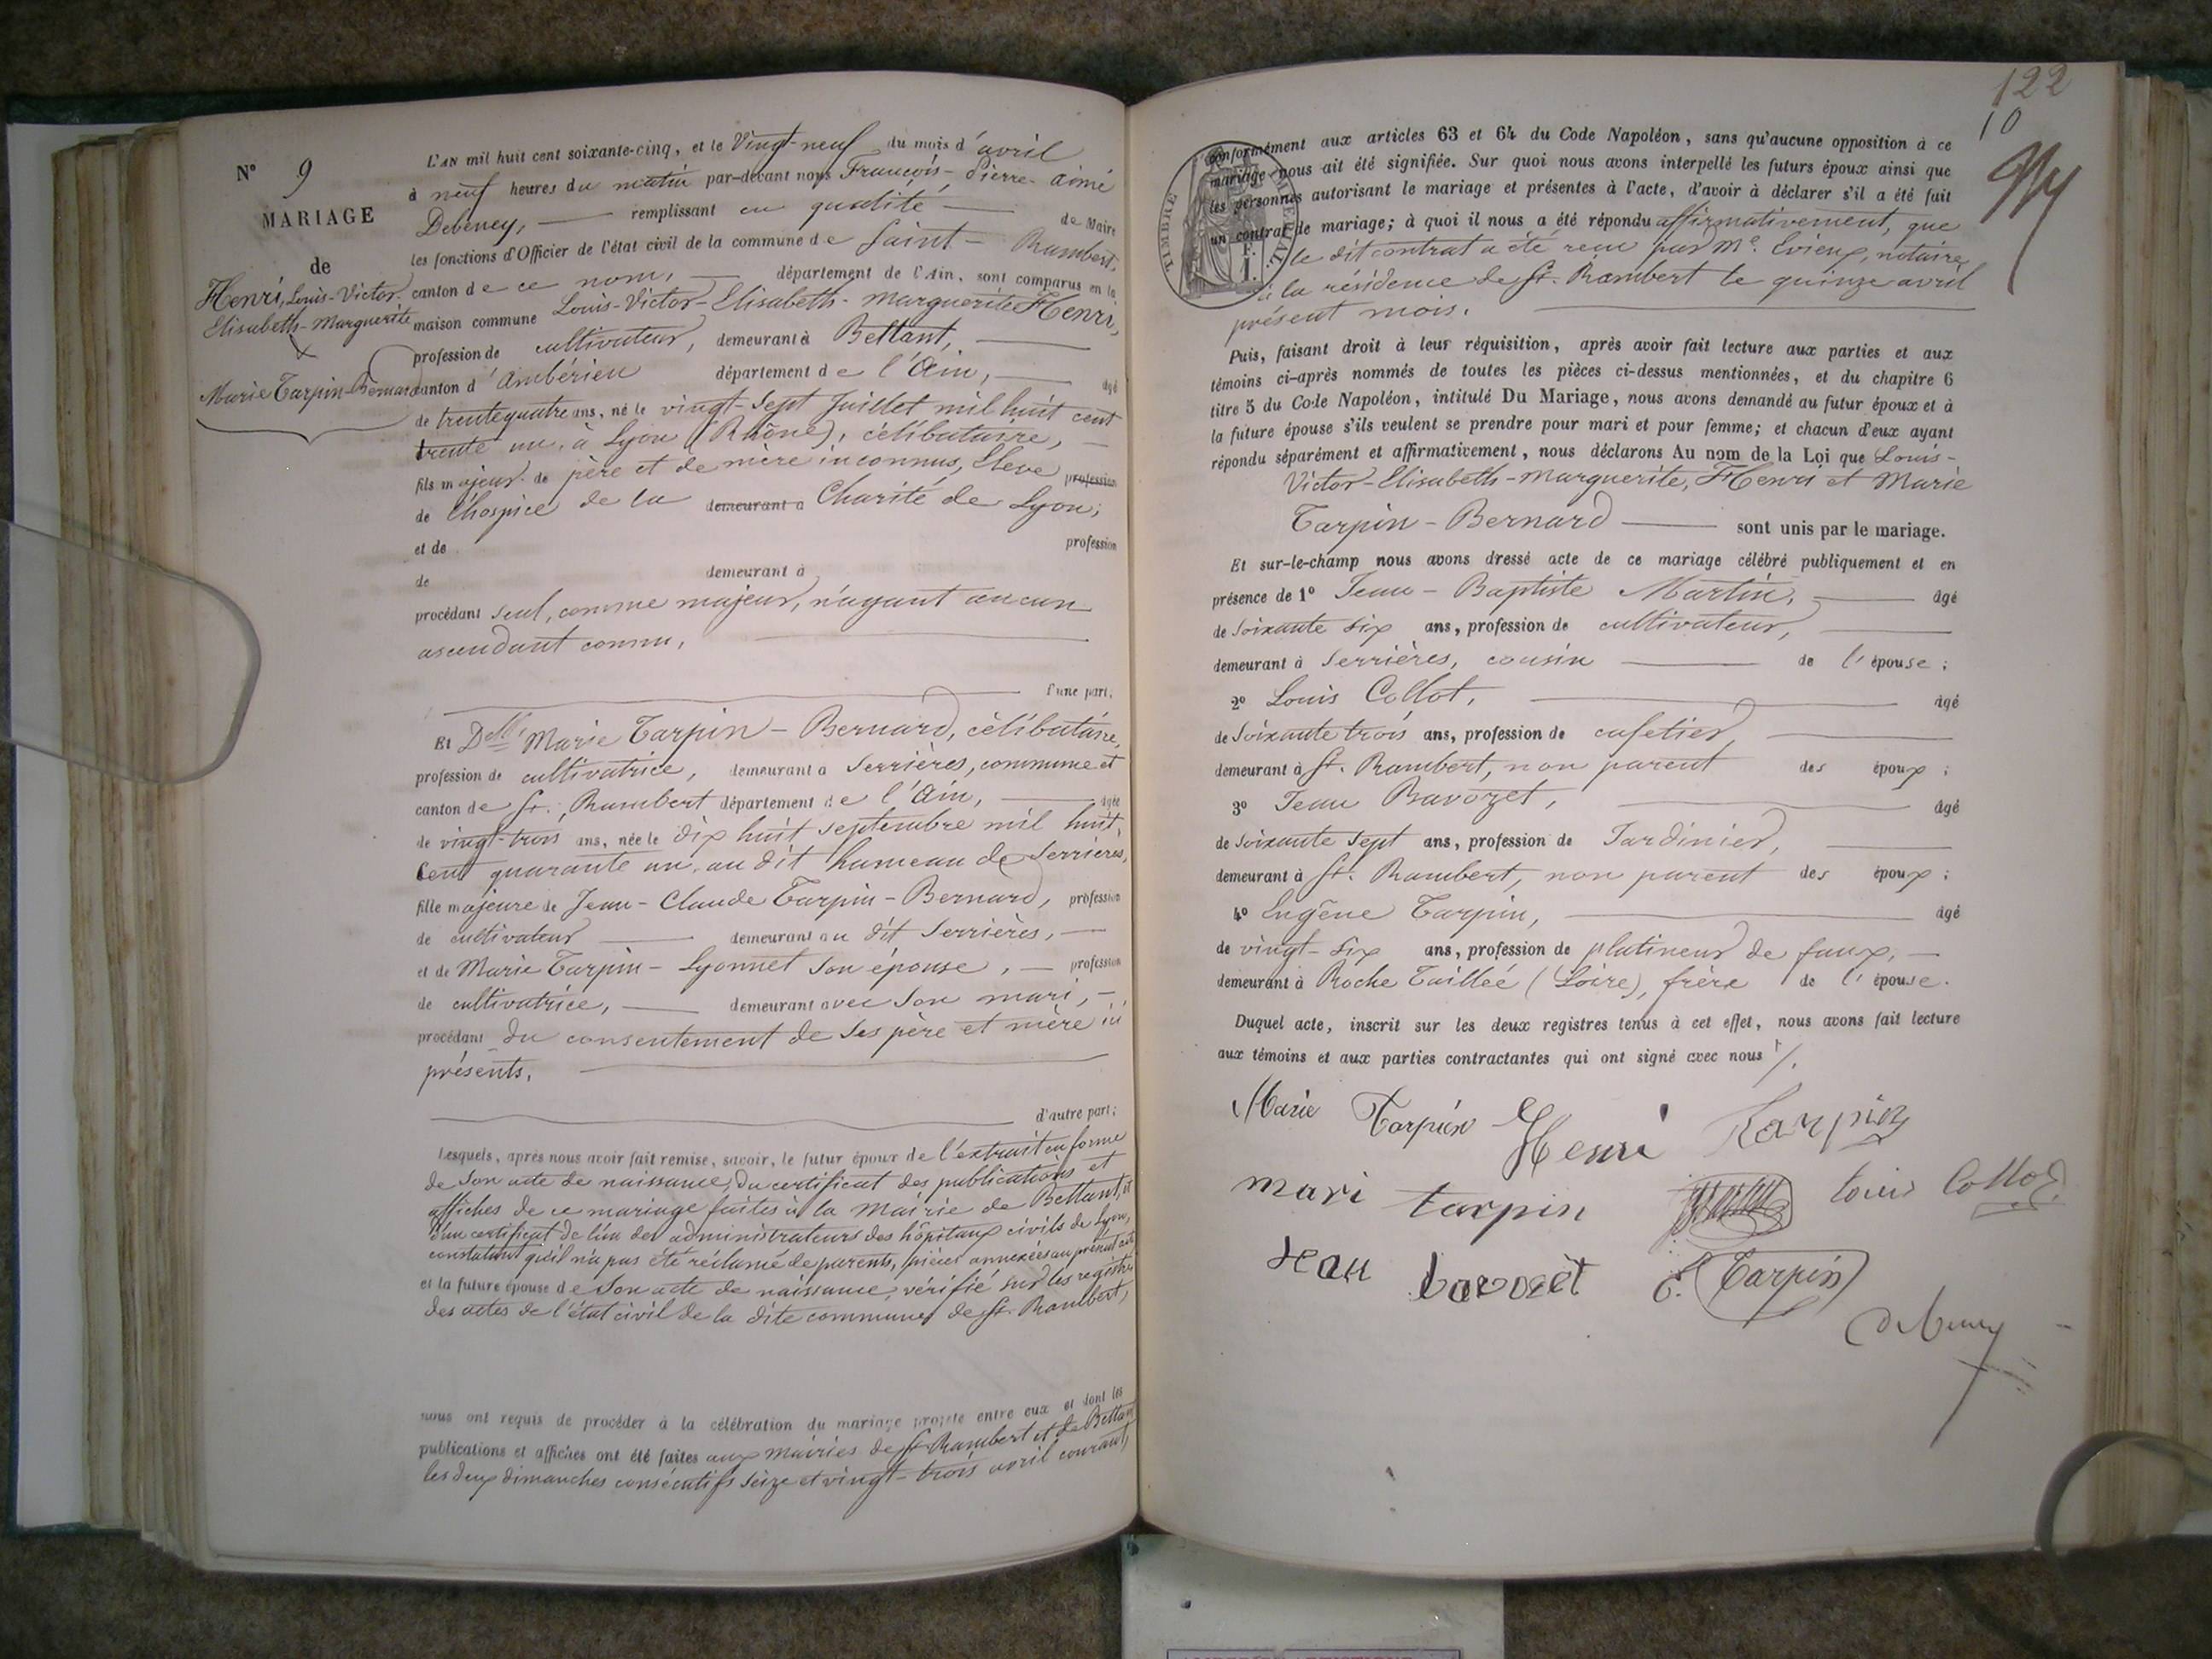 N° 9
MARIAGE
de
Henri, Louis-Victor-
Elisabeth-Marguerite
x
Marie Tarpin-Bernard
L'AN mil huit cent soixante-cinq, et le Vingt-neuf du mois d'avril
à neuf heures du matin par-devant nous François-Pierre-aimé
Debeney, remplissant en qualité de Maire
les fonctions d'Officier de l'état civil de la commune de Saint-Rambert,
canton de ce nom, département de l'Ain, sont comparus en la
maison commune Louis-Victor-Elisabeth-Marguerite Henri,
profession de cultivateur, demeurant à Bettant,
canton d'Ambérieu département de l'Ain, âgé
de trente quatre ans, né le vingt-sept Juillet mil huit cent
trente un, à Lyon (Rhône), célibataire,
fils majeur de père et de mère inconnus, Elève profession
de l'hospice de la demeurant à Charité de Lyon;
et de profession
de demeurant à
procédant seul, comme majeur, n'ayant aucun
ascendant connu,
d'une part,
Et Delle Marie Tarpin-Bernard, célibataire,
profession de cultivatrice, demeurant à Serrières, commune et
canton de St. Rambert département de l'Ain, âgée
de vingt-trois ans, née le dix huit septembre mil huit
Cent quarante un, au dit hameau de Serrières,
fille majeure de Jean-Claude Tarpin-Bernard, profession
de cultivateur demeurant au dit Serrières,
et de Marie Tarpin-Lyonnet son épouse, profession
de cultivatrice, demeurant avec son mari,
procédant du consentement de ses père et mère ici
présents,
d'autre part;
Lesquels, après nous avoir fait remise, savoir, le futur époux de l'extrait en forme
de son acte de naissance, du certificat des publications et
affiches de ce mariage faites à la Mairie de Bettant, et
d'un certificat de l'un des administrateurs des hôpitaux civils de Lyon,
constatant qu'il n'a pas été réclamé de parents, pièces annexées au présent acte
et la future épouse de son acte de naissance, vérifié sur les registres
des actes de l'état civil de la dite commune de St. Rambert,
nous ont requis de procéder à la célébration du mariage projeté entre eux et dont les
publications et affiches ont été faites aux mairies de St. Rambert et de Bettant
les deux dimanches consécutifs seize et vingt-trois avril courant,
122
10
TIMBRE IMPERIAL
1 F.
conformément aux articles 63 et 64 du Code Napoléon, sans qu'aucune opposition à ce
mariage nous ait été signifiée. Sur quoi nous avons interpellé les futurs époux ainsi que
les personnes autorisant le mariage et présentes à l'acte, d'avoir à déclarer s'il a été fait
un contrat de mariage; à quoi il nous a été répondu affirmativement, que
le dit contrat a été reçu par Me. Evieux, notaire
à la résidence de St. Rambert le quinze avril
présent mois.
Puis, faisant droit à leur réquisition, après avoir fait lecture aux parties et aux
témoins ci-après nommés de toutes les pièces ci-dessus mentionnées, et du chapitre 6
titre 5 du Code Napoléon, intitulé Du Mariage, nous avons demandé au futur époux et à
la future épouse s'ils veulent se prendre pour mari et pour femme; et chacun d'eux ayant
répondu séparément et affirmativement, nous déclarons Au nom de la Loi que Louis-
Victor-Elisabeth-Marguerite, Henri et Marie
Tarpin-Bernard sont unis par le mariage.
Et sur-le-champ nous avons dressé acte de ce mariage célébré publiquement et en
présence de 1° Jean-Baptiste Martin, âgé
de soixante six ans, profession de cultivateur,
demeurant à Serrières, cousin de l'épouse;
2° Louis Collot, âgé
de soixante trois ans, profession de cafetier,
demeurant à St. Rambert, non parent des époux;
3° Jean Bavozet, âgé
de soixante sept ans, profession de Jardinier,
demeurant à St. Rambert, non parent des époux;
4° Eugène Tarpin, âgé
de vingt-six ans, profession de platineur de faux,
demeurant à Roche Taillée (Loire), frère de l'épouse.
Duquel acte, inscrit sur les deux registres tenus à cet effet, nous avons fait lecture
aux témoins et aux parties contractantes qui ont signé avec nous /.
Marie Tarpin Henri Tarpin
mari tarpin Louis Collot
Jean bavozet E. Tarpin
Debeney